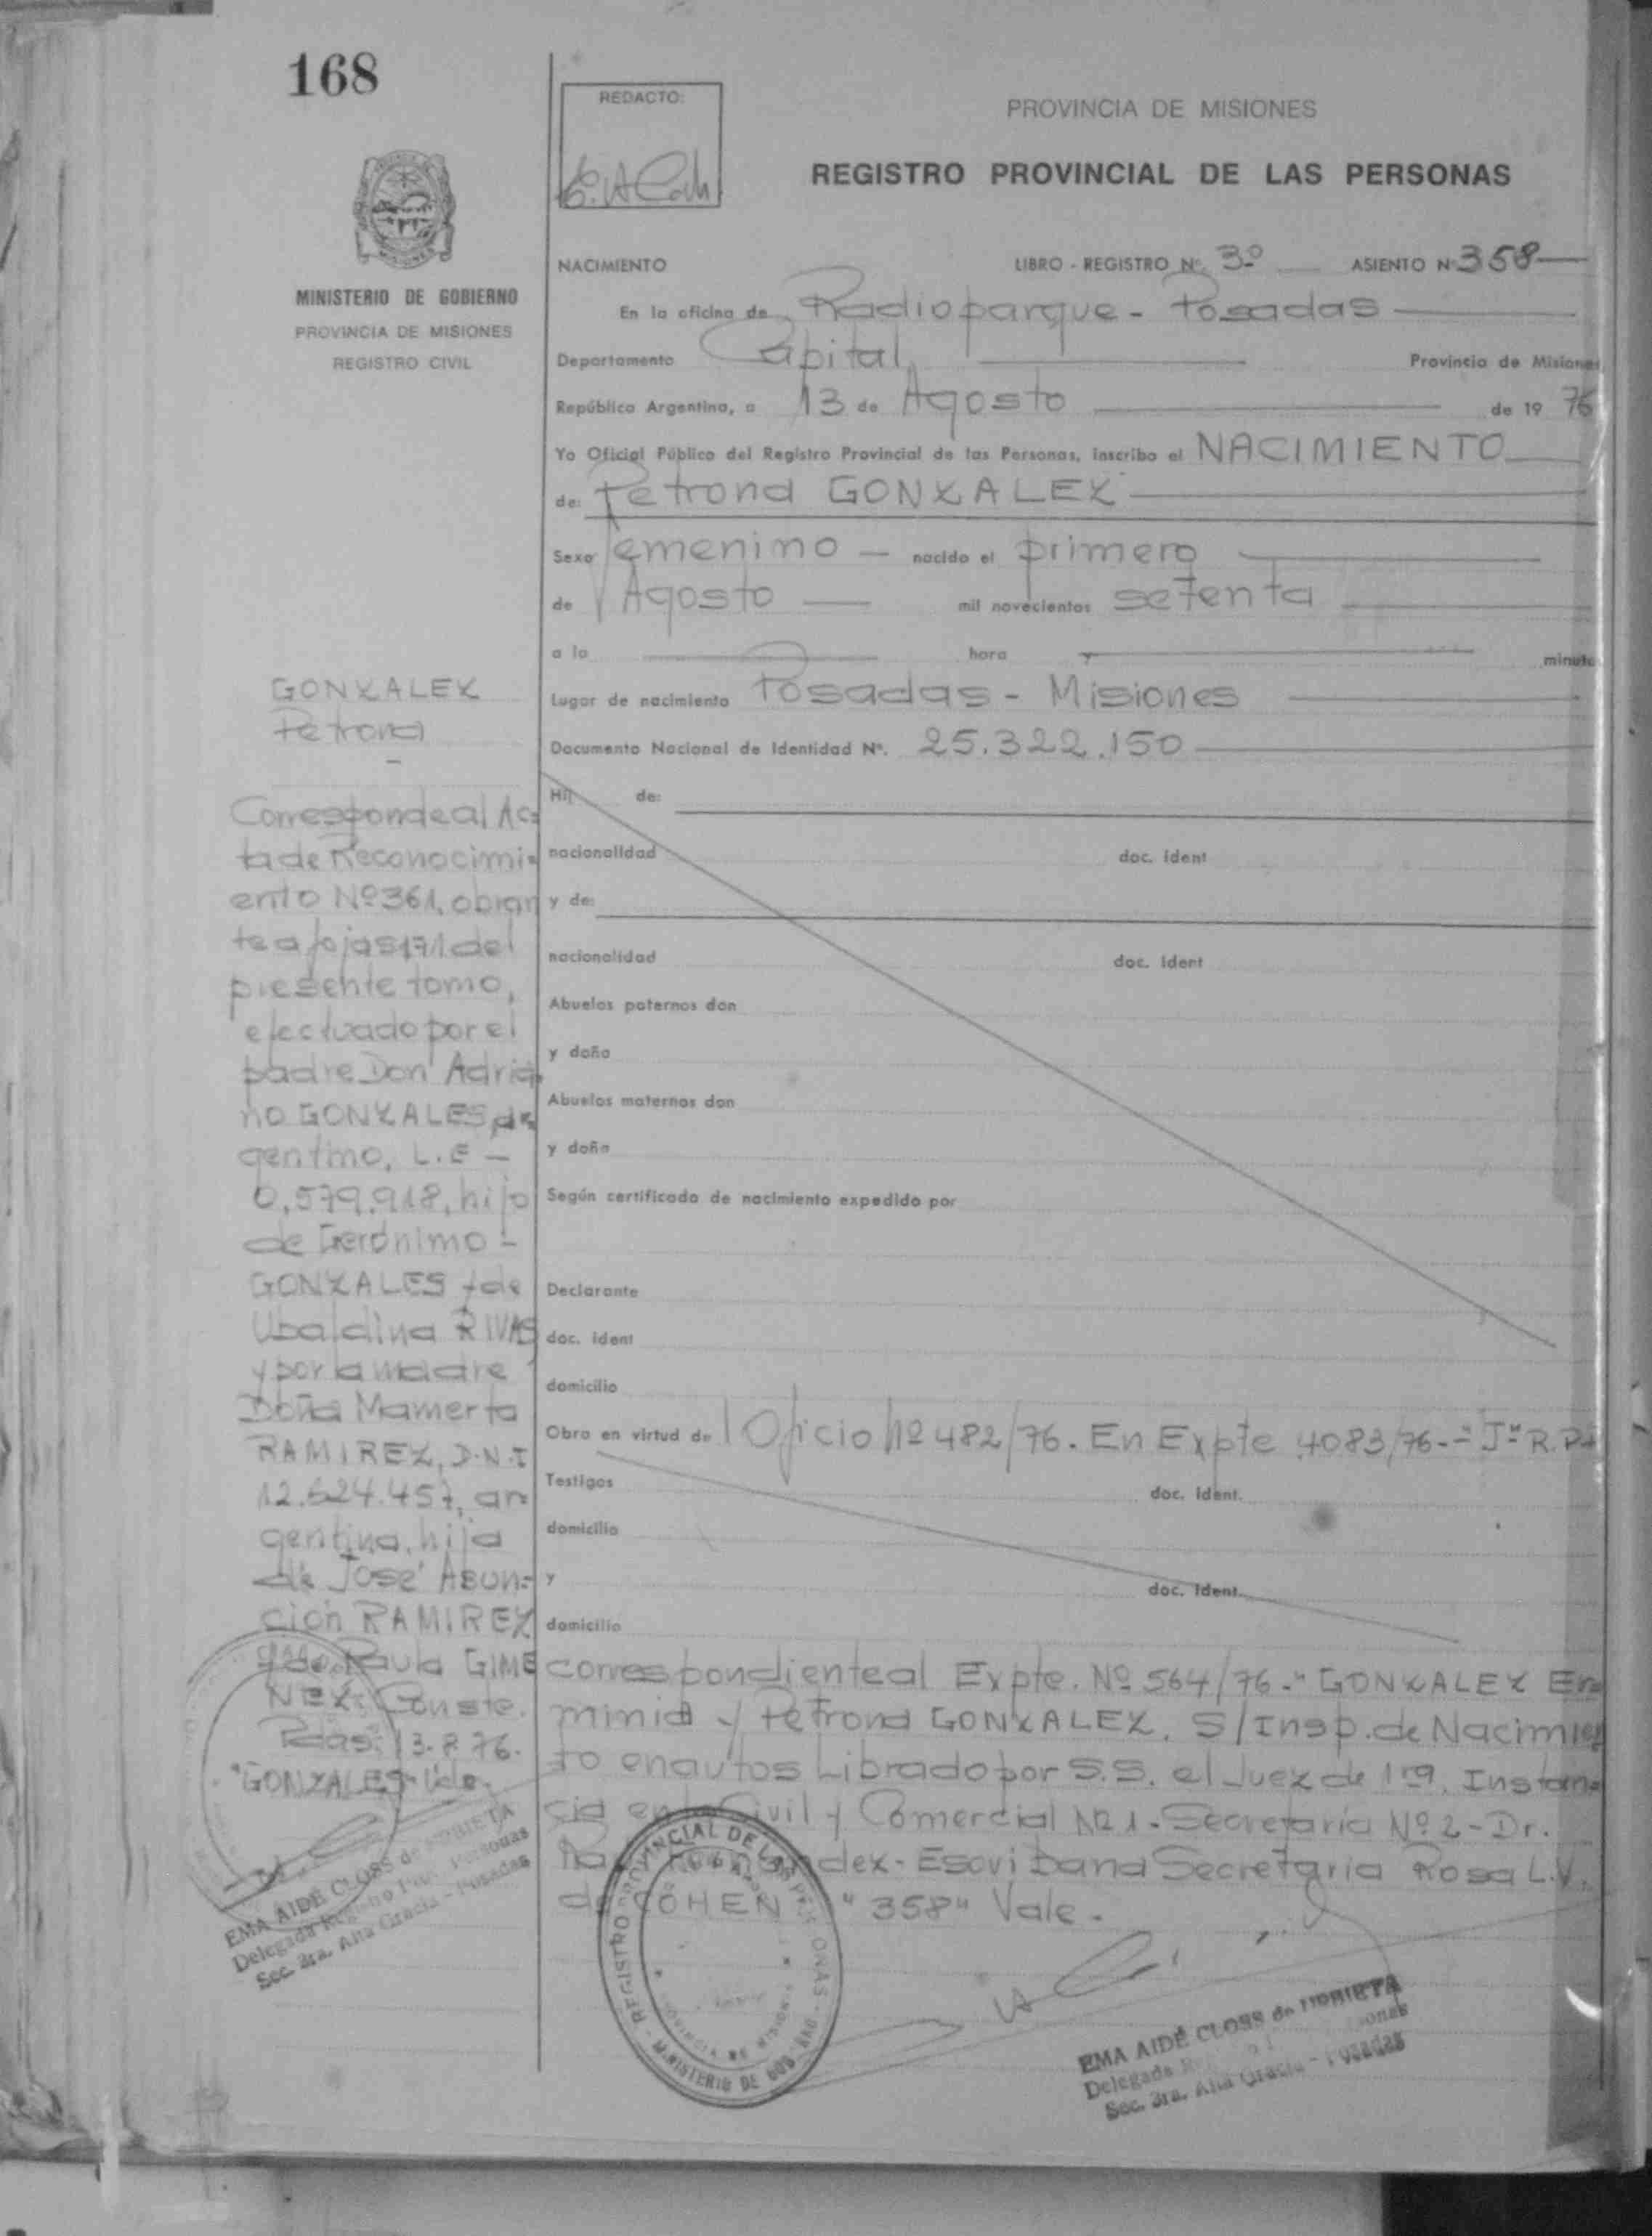 168
REDACTO:
PROVINCIA DE MISIONES
REGISTRO PROVINCIAL DE LAS PERSONAS
MINISTERIO DE GOBIERNO
PROVINCIA DE MISIONES
REGISTRO CIVIL
NACIMIENTO LIBRO - REGISTRO Nº. 3º ASIENTO Nº 358
En la oficina de Radioparque - Posadas
Departamento Capital Provincia de Misiones
República Argentina, a 13 de Agosto de 19 76
Yo Oficial Público del Registro Provincial de las Personas, inscribo el NACIMIENTO
de: Petrona GONZALEZ
Sexo femenino nacido el primero
de Agosto mil novecientos setenta
a la hora y minuto
Lugar de nacimiento Posadas - Misiones
Documento Nacional de Identidad Nº. 25.322.150
Hij de:
nacionalidad doc. ident
y de:
nacionalidad doc. ident
Abuelos paternos don
y doña
Abuelos maternos don
y doña
Según certificado de nacimiento expedido por
Declarante
doc. ident
domicilio
Obra en virtud de Oficio Nº 482/76. En Expte 4083/76
Testigos doc. ident.
domicilio
y doc. ident.
domicilio
correspondiente al Expte. Nº 564/76 - "GONZALEZ Er
minia y Petrona GONZALEZ, S/Insp. de Nacimien
to en autos Librado por S.S. el Juez de 1ra. Instan=
cia en lo Civil y Comercial Nº 1 - Secretaria Nº 2 - Dr.
Escribana Secretaria Rosa L.V.
de COHEN "358" Vale.
GONZALEZ
Petrona
Corresponde al Ac=
ta de Reconocimi=
ento Nº 361, obran
te a fojas 171 del
presente tomo,
efectuado por el
padre Don Adria
no GONZALES, ar
gentino, L.E -
0.579.918, hijo
de Gerónimo -
GONZALES y de
Ubaldina RIVAS
y por la madre
Doña Mamerta
RAMIREZ, D.N.I
12.624.457, ar=
gentina, hija
de José Asun=
ción RAMIREZ
y de Paula GIME
NEZ. Conste.
Pdas. 13.8.76.
"GONZALES" Vale.
EMA AIDÉ CLOSS de URRIETA
Delegada Registro Prov. Personas
Sec. 3ra. Alta Gracia - Posadas
REGISTRO PROVINCIAL DE LAS PERSONAS - MINISTERIO DE GOB.
PROVINCIA DE MISIONES
EMA AIDÉ CLOSS de URRIETA
Delegada
Sec. 3ra. Alta Gracia - Posadas